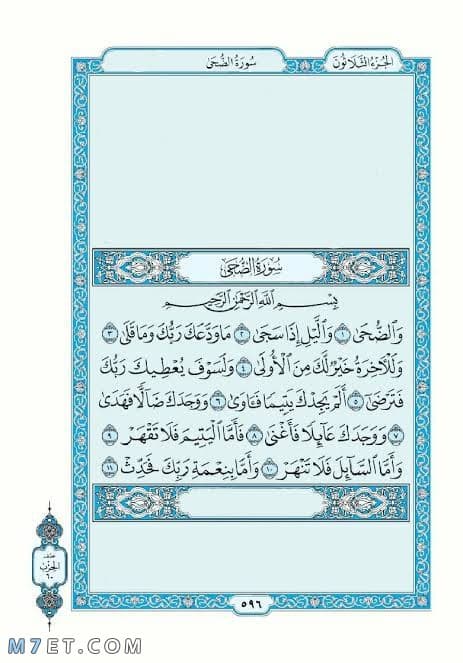 الجزء الثلاثون
سورة الضحى
سُورَةُ الضُّحَىٰ
بِسْمِ اللَّهِ الرَّحْمَٰنِ الرَّحِيمِ
وَالضُّحَىٰ ١ وَاللَّيْلِ إِذَا سَجَىٰ ٢ مَا وَدَّعَكَ رَبُّكَ وَمَا قَلَىٰ ٣
وَلَلْآخِرَةُ خَيْرٌ لَّكَ مِنَ الْأُولَىٰ ٤ وَلَسَوْفَ يُعْطِيكَ رَبُّكَ
فَتَرْضَىٰ ٥ أَلَمْ يَجِدْكَ يَتِيمًا فَآوَىٰ ٦ وَوَجَدَكَ ضَالًّا فَهَدَىٰ
٧ وَوَجَدَكَ عَائِلًا فَأَغْنَىٰ ٨ فَأَمَّا الْيَتِيمَ فَلَا تَقْهَرْ ٩
وَأَمَّا السَّائِلَ فَلَا تَنْهَرْ ١٠ وَأَمَّا بِنِعْمَةِ رَبِّكَ فَحَدِّثْ ١١
نصف
الحزب
٦٠
٥٩٦
M7ET.COM